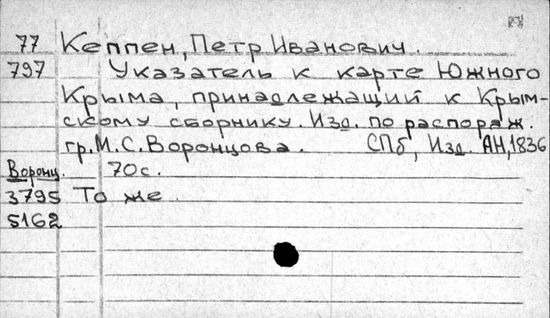 77 Кеппен, Петр Иванович.
797 Указатель к карте Южного
Крыма, принадлежащий к Крым-
скому сборнику. Изд. по распоряж.
гр. М.С. Воронцова. СПб, Изд. АН, 1836
Воронц. 70 с.
3795 То же
5162